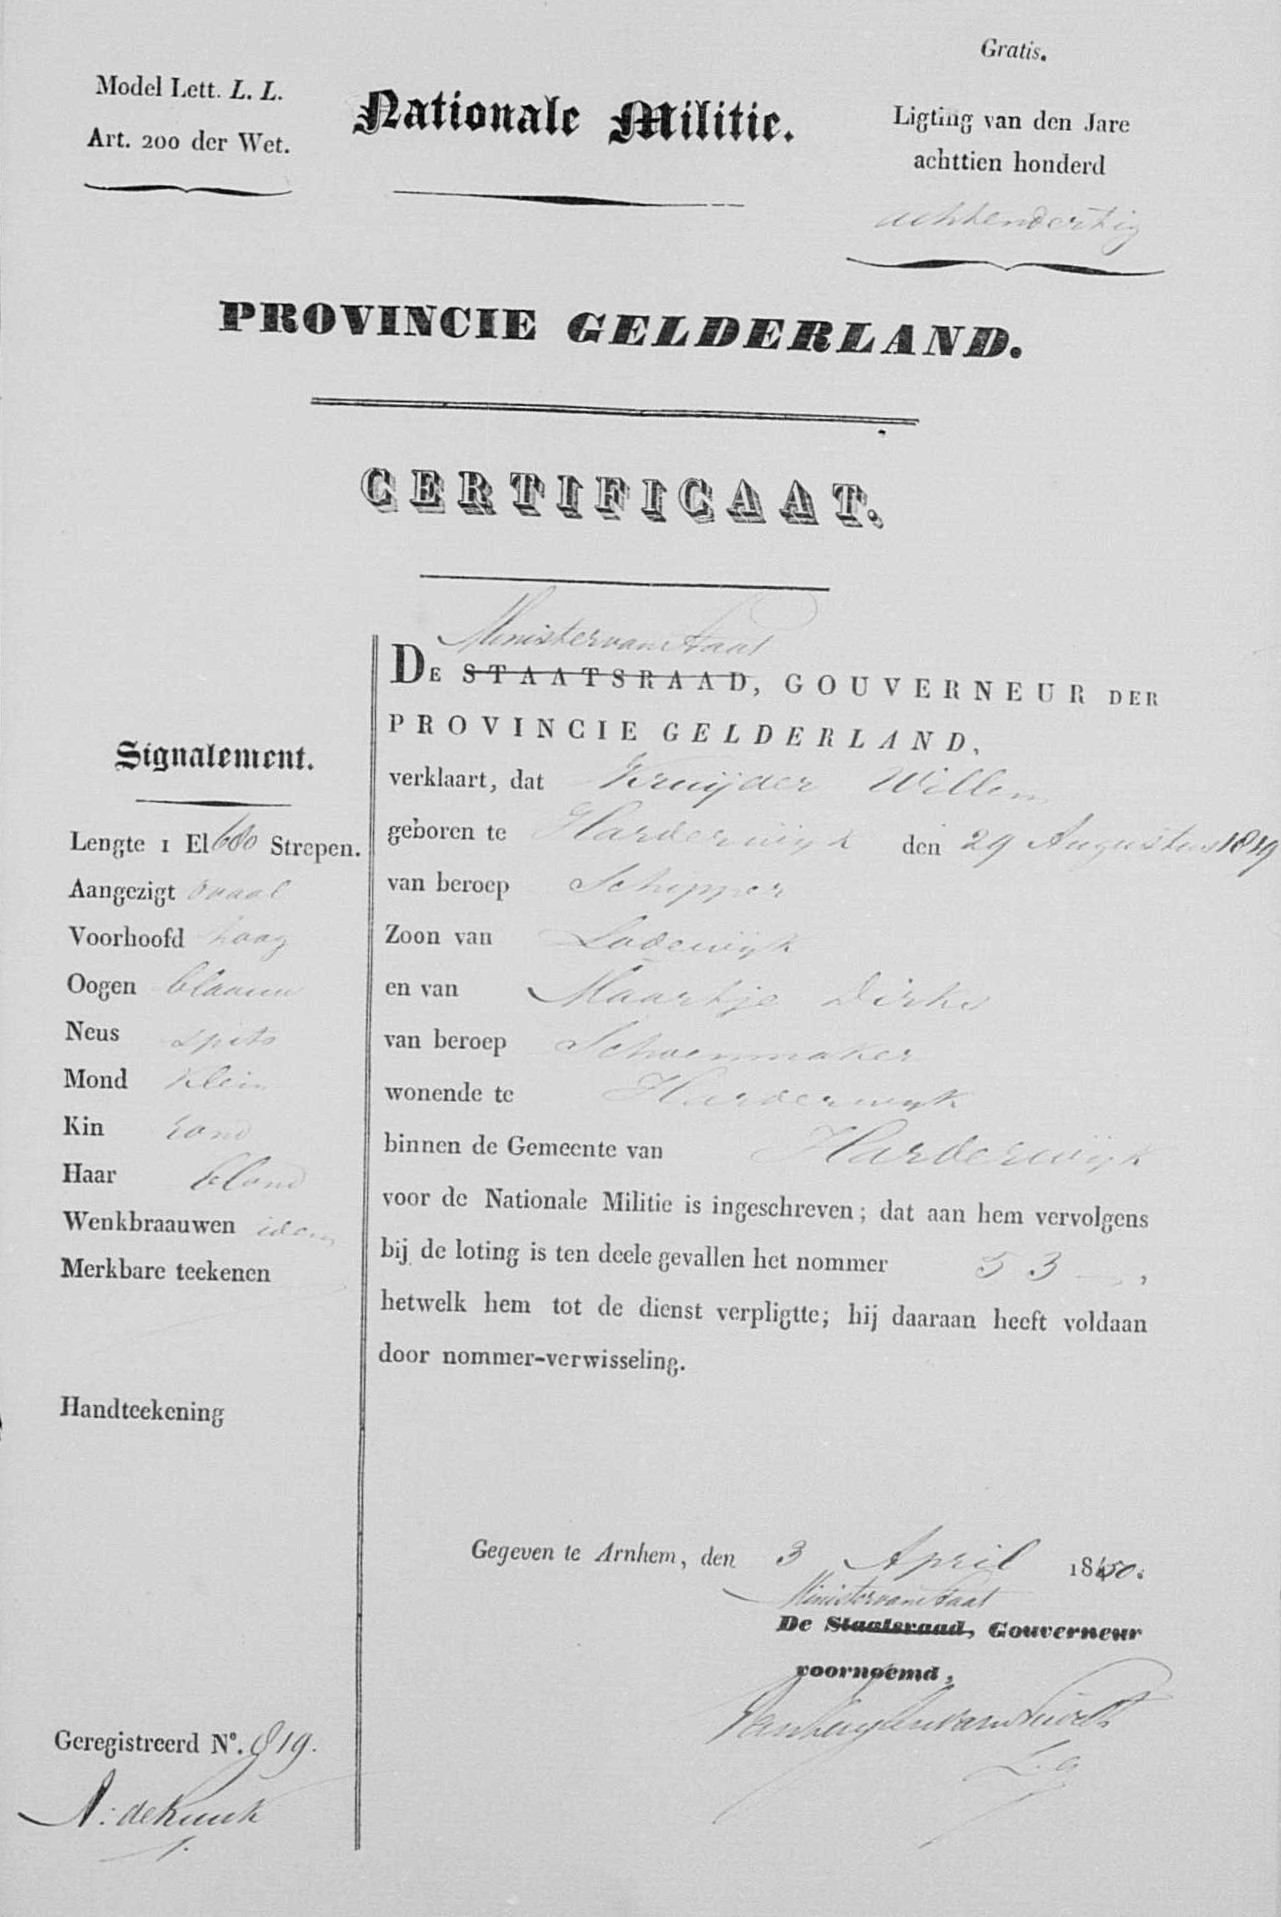 Gratis.
Model Lett. L. L.
Art. 200 der Wet.
Nationale Militie.
Ligting van den Jare
achttien honderd
achtendertig
PROVINCIE GELDERLAND.
CERTIFICAAT.
Minister van Staat
DE STAATSRAAD, GOUVERNEUR DER
PROVINCIE GELDERLAND,
verklaart, dat Kruijder Willem
geboren te Harderwijk den 29 Augustus 1819
van beroep Schipper
Zoon van Lodewijk
en van Maartje Dirks
van beroep Schoenmaker
wonende te Harderwijk
binnen de Gemeente van Harderwijk
voor de Nationale Militie is ingeschreven; dat aan hem vervolgens
bij de loting is ten deele gevallen het nommer 53,
hetwelk hem tot de dienst verpligtte; hij daaraan heeft voldaan
door nommer-verwisseling.
Signalement.
Lengte 1 El 680 Strepen.
Aangezigt ovaal
Voorhoofd hoog
Oogen blaauw
Neus spits
Mond klein
Kin rond
Haar blond
Wenkbraauwen idem
Merkbare teekenen
Handteekening
Gegeven te Arnhem, den 3 April 1850.
Minister van Staat
De Staatsraad, Gouverneur
voornoemd,
Geregistreerd N°. 819.